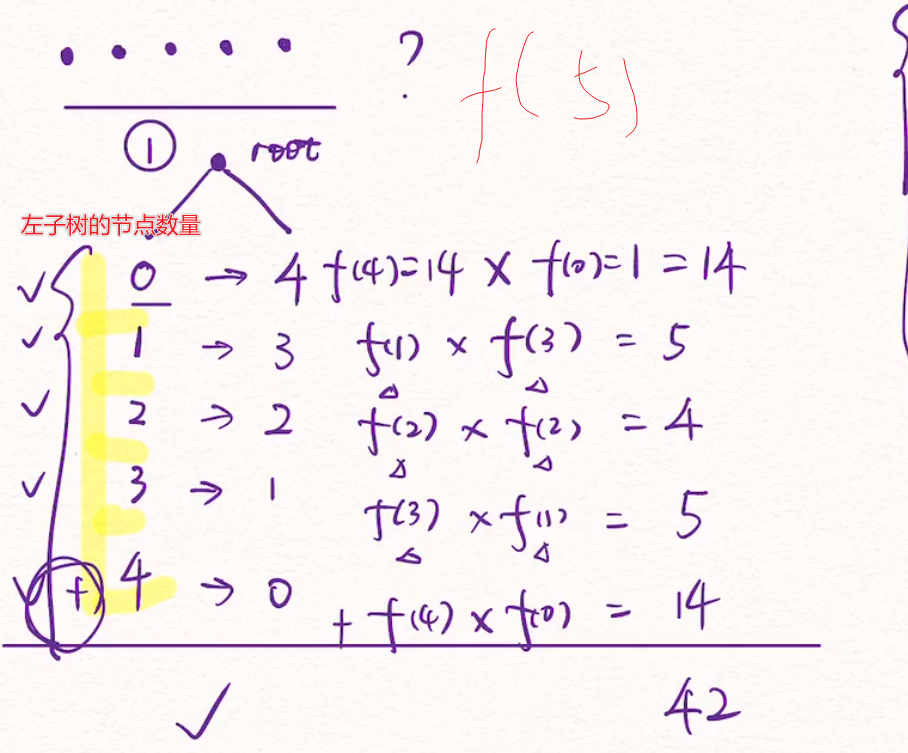 ? f(5)
① root
左子树的节点数量
0 → 4 f(4)=14 × f(0)=1 = 14
1 → 3 f(1) × f(3) = 5
2 → 2 f(2) × f(2) = 4
3 → 1 f(3) × f(1) = 5
+ 4 → 0 + f(4) × f(0) = 14
42